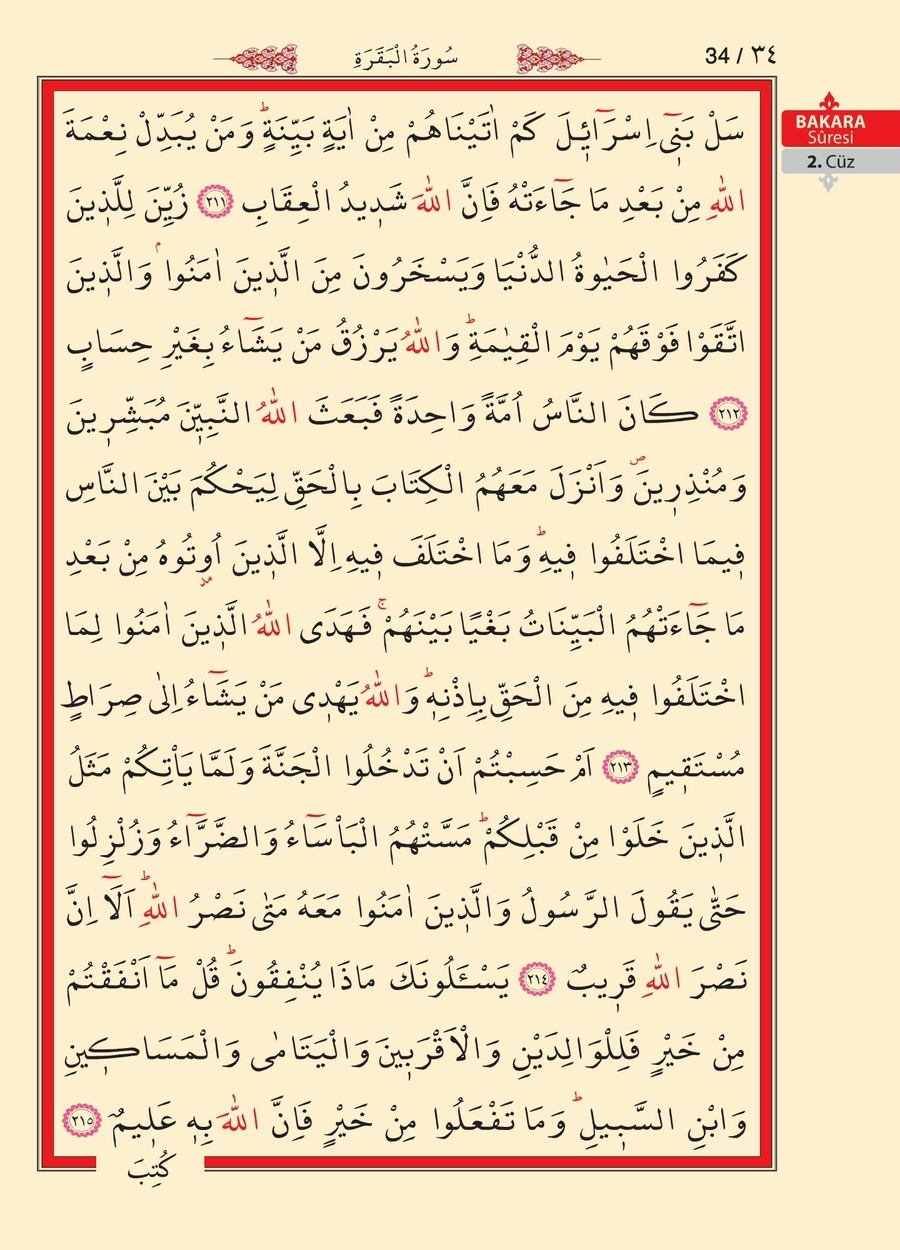 34 / ٣٤
سُورَةُ الْبَقَرَةِ
BAKARA
Sûresi
2. Cüz
سَلْ بَنٖٓي اِسْرَٓائٖلَ كَمْ اٰتَيْنَاهُمْ مِنْ اٰيَةٍ بَيِّنَةٍؕ وَمَنْ يُبَدِّلْ نِعْمَةَ
اللّٰهِ مِنْ بَعْدِ مَا جَٓاءَتْهُ فَاِنَّ اللّٰهَ شَدٖيدُ الْعِقَابِ ﴿٢١١﴾ زُيِّنَ لِلَّذٖينَ
كَفَرُوا الْحَيٰوةُ الدُّنْيَا وَيَسْخَرُونَ مِنَ الَّذٖينَ اٰمَنُواۢ وَالَّذٖينَ
اتَّقَوْا فَوْقَهُمْ يَوْمَ الْقِيٰمَةِؕ وَاللّٰهُ يَرْزُقُ مَنْ يَشَٓاءُ بِغَيْرِ حِسَابٍ
﴿٢١٢﴾ كَانَ النَّاسُ اُمَّةً وَاحِدَةً فَبَعَثَ اللّٰهُ النَّبِيّٖنَ مُبَشِّرٖينَ
وَمُنْذِرٖينَࣕ وَاَنْزَلَ مَعَهُمُ الْكِتَابَ بِالْحَقِّ لِيَحْكُمَ بَيْنَ النَّاسِ
فٖيمَا اخْتَلَفُوا فٖيهِؕ وَمَا اخْتَلَفَ فٖيهِ اِلَّا الَّذٖينَ اُو۫تُوهُ مِنْ بَعْدِ
مَا جَٓاءَتْهُمُ الْبَيِّنَاتُ بَغْيًا بَيْنَهُمْۚ فَهَدَى اللّٰهُ الَّذٖينَ اٰمَنُوا لِمَا
اخْتَلَفُوا فٖيهِ مِنَ الْحَقِّ بِاِذْنِهٖؕ وَاللّٰهُ يَهْدٖي مَنْ يَشَٓاءُ اِلٰى صِرَاطٍ
مُسْتَقٖيمٍ ﴿٢١٣﴾ اَمْ حَسِبْتُمْ اَنْ تَدْخُلُوا الْجَنَّةَ وَلَمَّا يَأْتِكُمْ مَثَلُ
الَّذٖينَ خَلَوْا مِنْ قَبْلِكُمْؕ مَسَّتْهُمُ الْبَأْسَٓاءُ وَالضَّرَّٓاءُ وَزُلْزِلُوا
حَتّٰى يَقُولَ الرَّسُولُ وَالَّذٖينَ اٰمَنُوا مَعَهُ مَتٰى نَصْرُ اللّٰهِؕ اَلَٓا اِنَّ
نَصْرَ اللّٰهِ قَرٖيبٌ ﴿٢١٤﴾ يَسْـَٔلُونَكَ مَاذَا يُنْفِقُونَؕ قُلْ مَٓا اَنْفَقْتُمْ
مِنْ خَيْرٍ فَلِلْوَالِدَيْنِ وَالْاَقْرَبٖينَ وَالْيَتَامٰى وَالْمَسَاكٖينِ
وَابْنِ السَّبٖيلِؕ وَمَا تَفْعَلُوا مِنْ خَيْرٍ فَاِنَّ اللّٰهَ بِهٖ عَلٖيمٌ ﴿٢١٥﴾
كُتِبَ